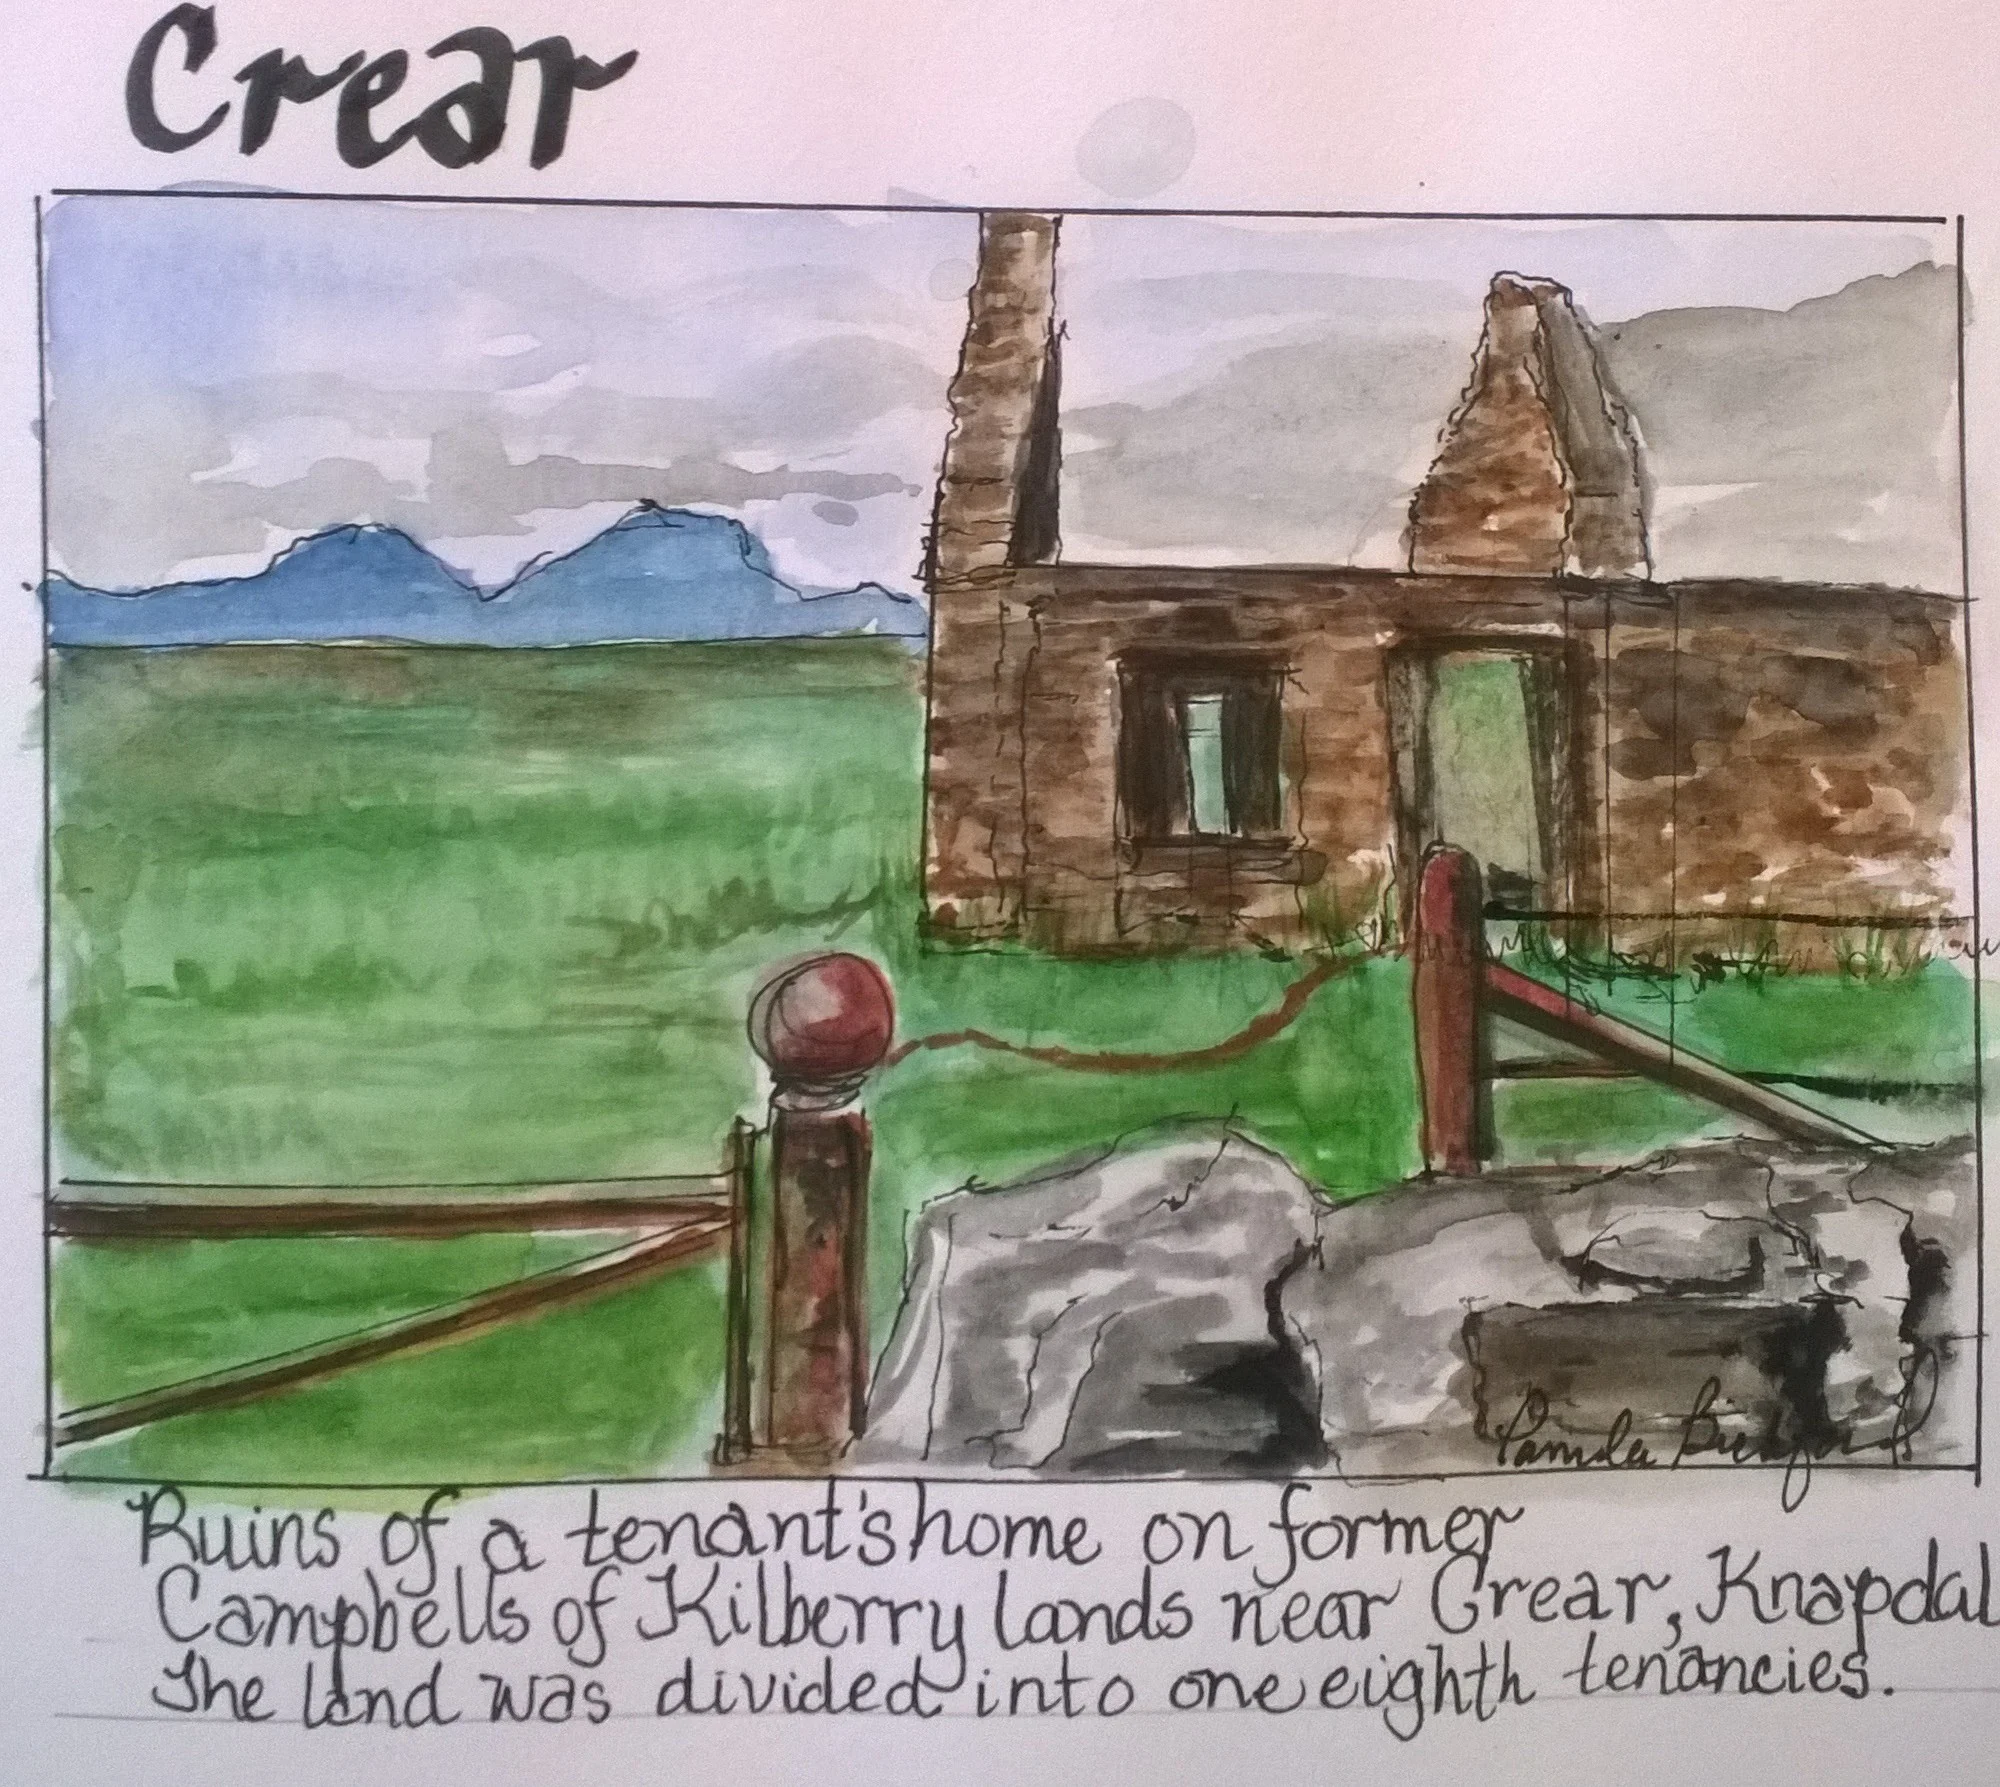 Crear
Pamela Bickford
Ruins of a tenant's home on former
Campbells of Kilberry lands near Crear, Knapdal
The land was divided into one eighth tenancies.